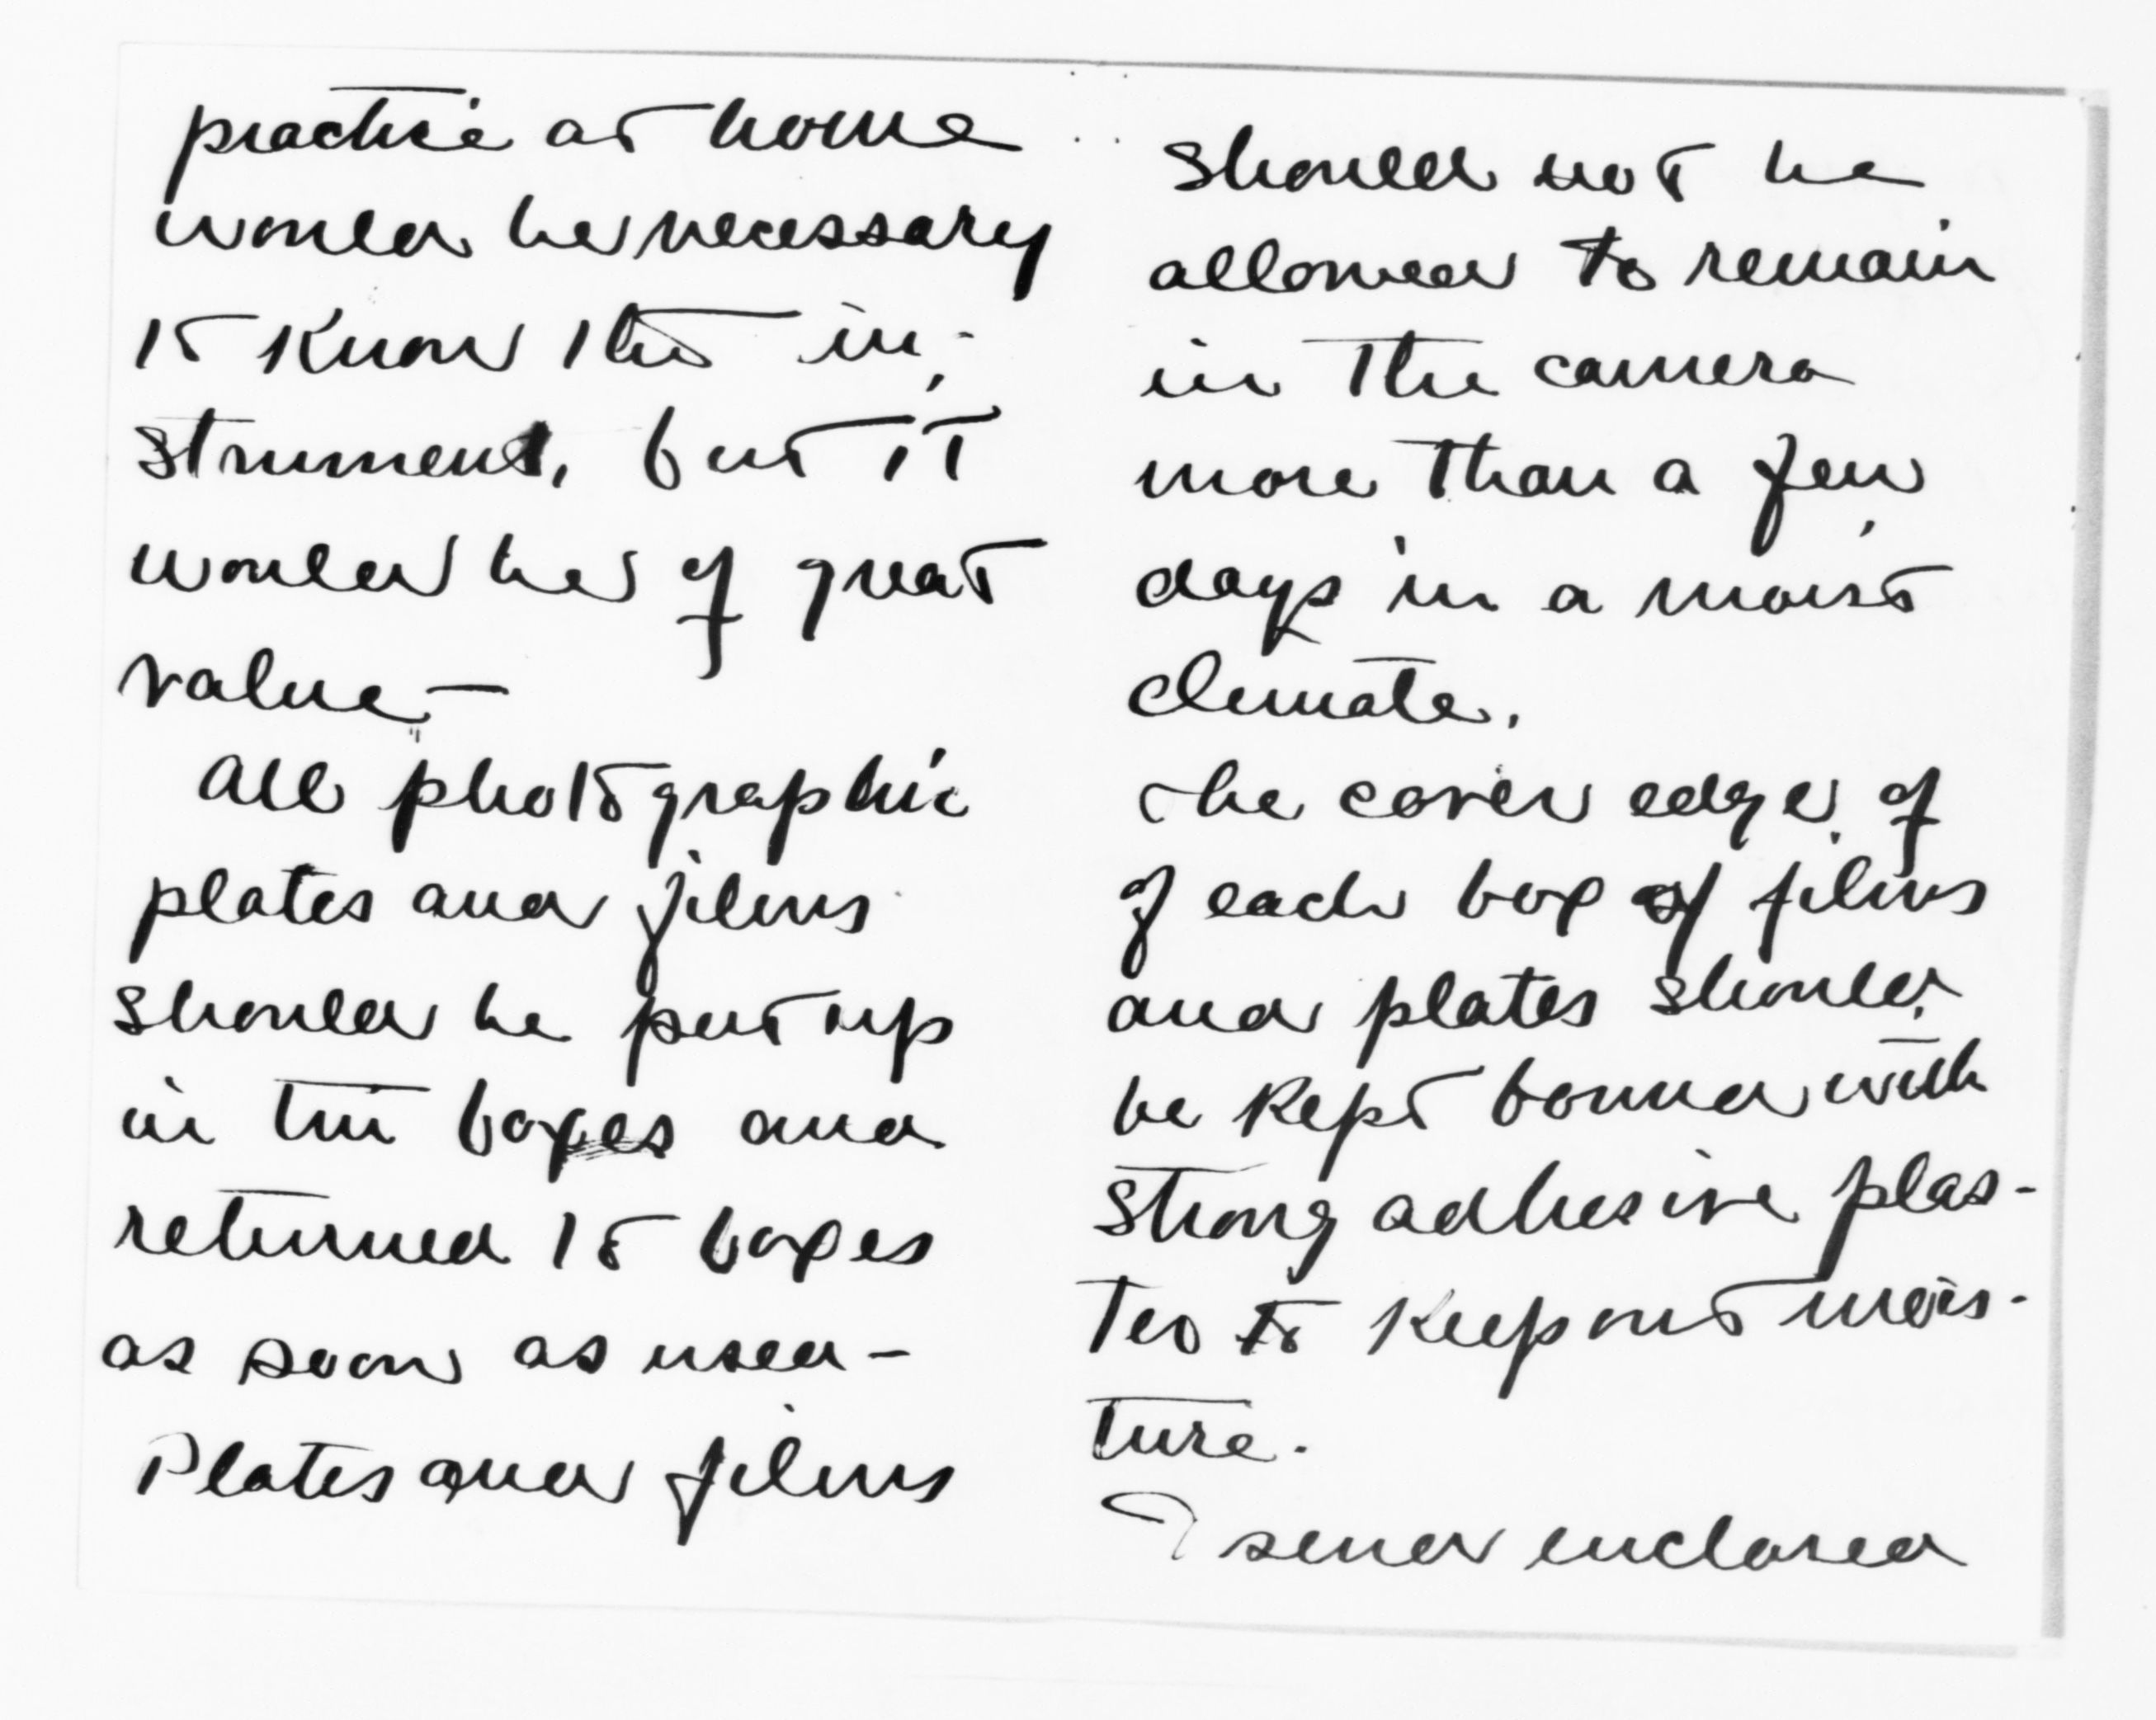 practice at home
would be necessary
to know the in-
strument, but it
would be of great
value—
All photographic
plates and films
should be put up
in tin boxes and
returned to boxes
as soon as used-
Plates and films
should not be
allowed to remain
in the camera
more than a few
days in a moist
climate.
The cover edge of
of each box of films
and plates should
be kept bound with
strong adhesive plas-
ter to keep out mois-
ture.
I send enclosed